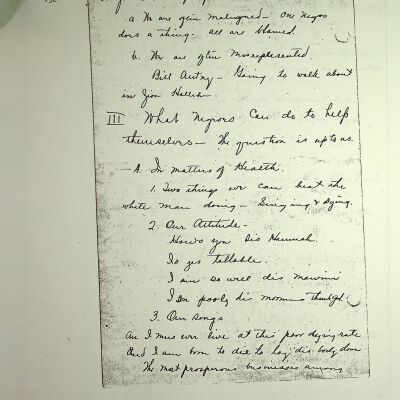 a. We are often maligned - One Negro
does a thing. all are blamed.
b. We are often misrepresented
Bill - Going to walk about
in Jerusalem
III What Negroes Can do to help
themselves - The question is up to us.
A. In matters of Health.
1. Two things we can beat the
white man doing - Singing & Dying.
2. Our Attitude -
How's you Sis Hannah.
Is yes tollable.
I am so well dis mawnin
I is pooly dis mornin thank God.
3. Our songs
An I mus ever live at this poor dying rate
And I am born to die to lay dis body down
The most prosperous businesses among